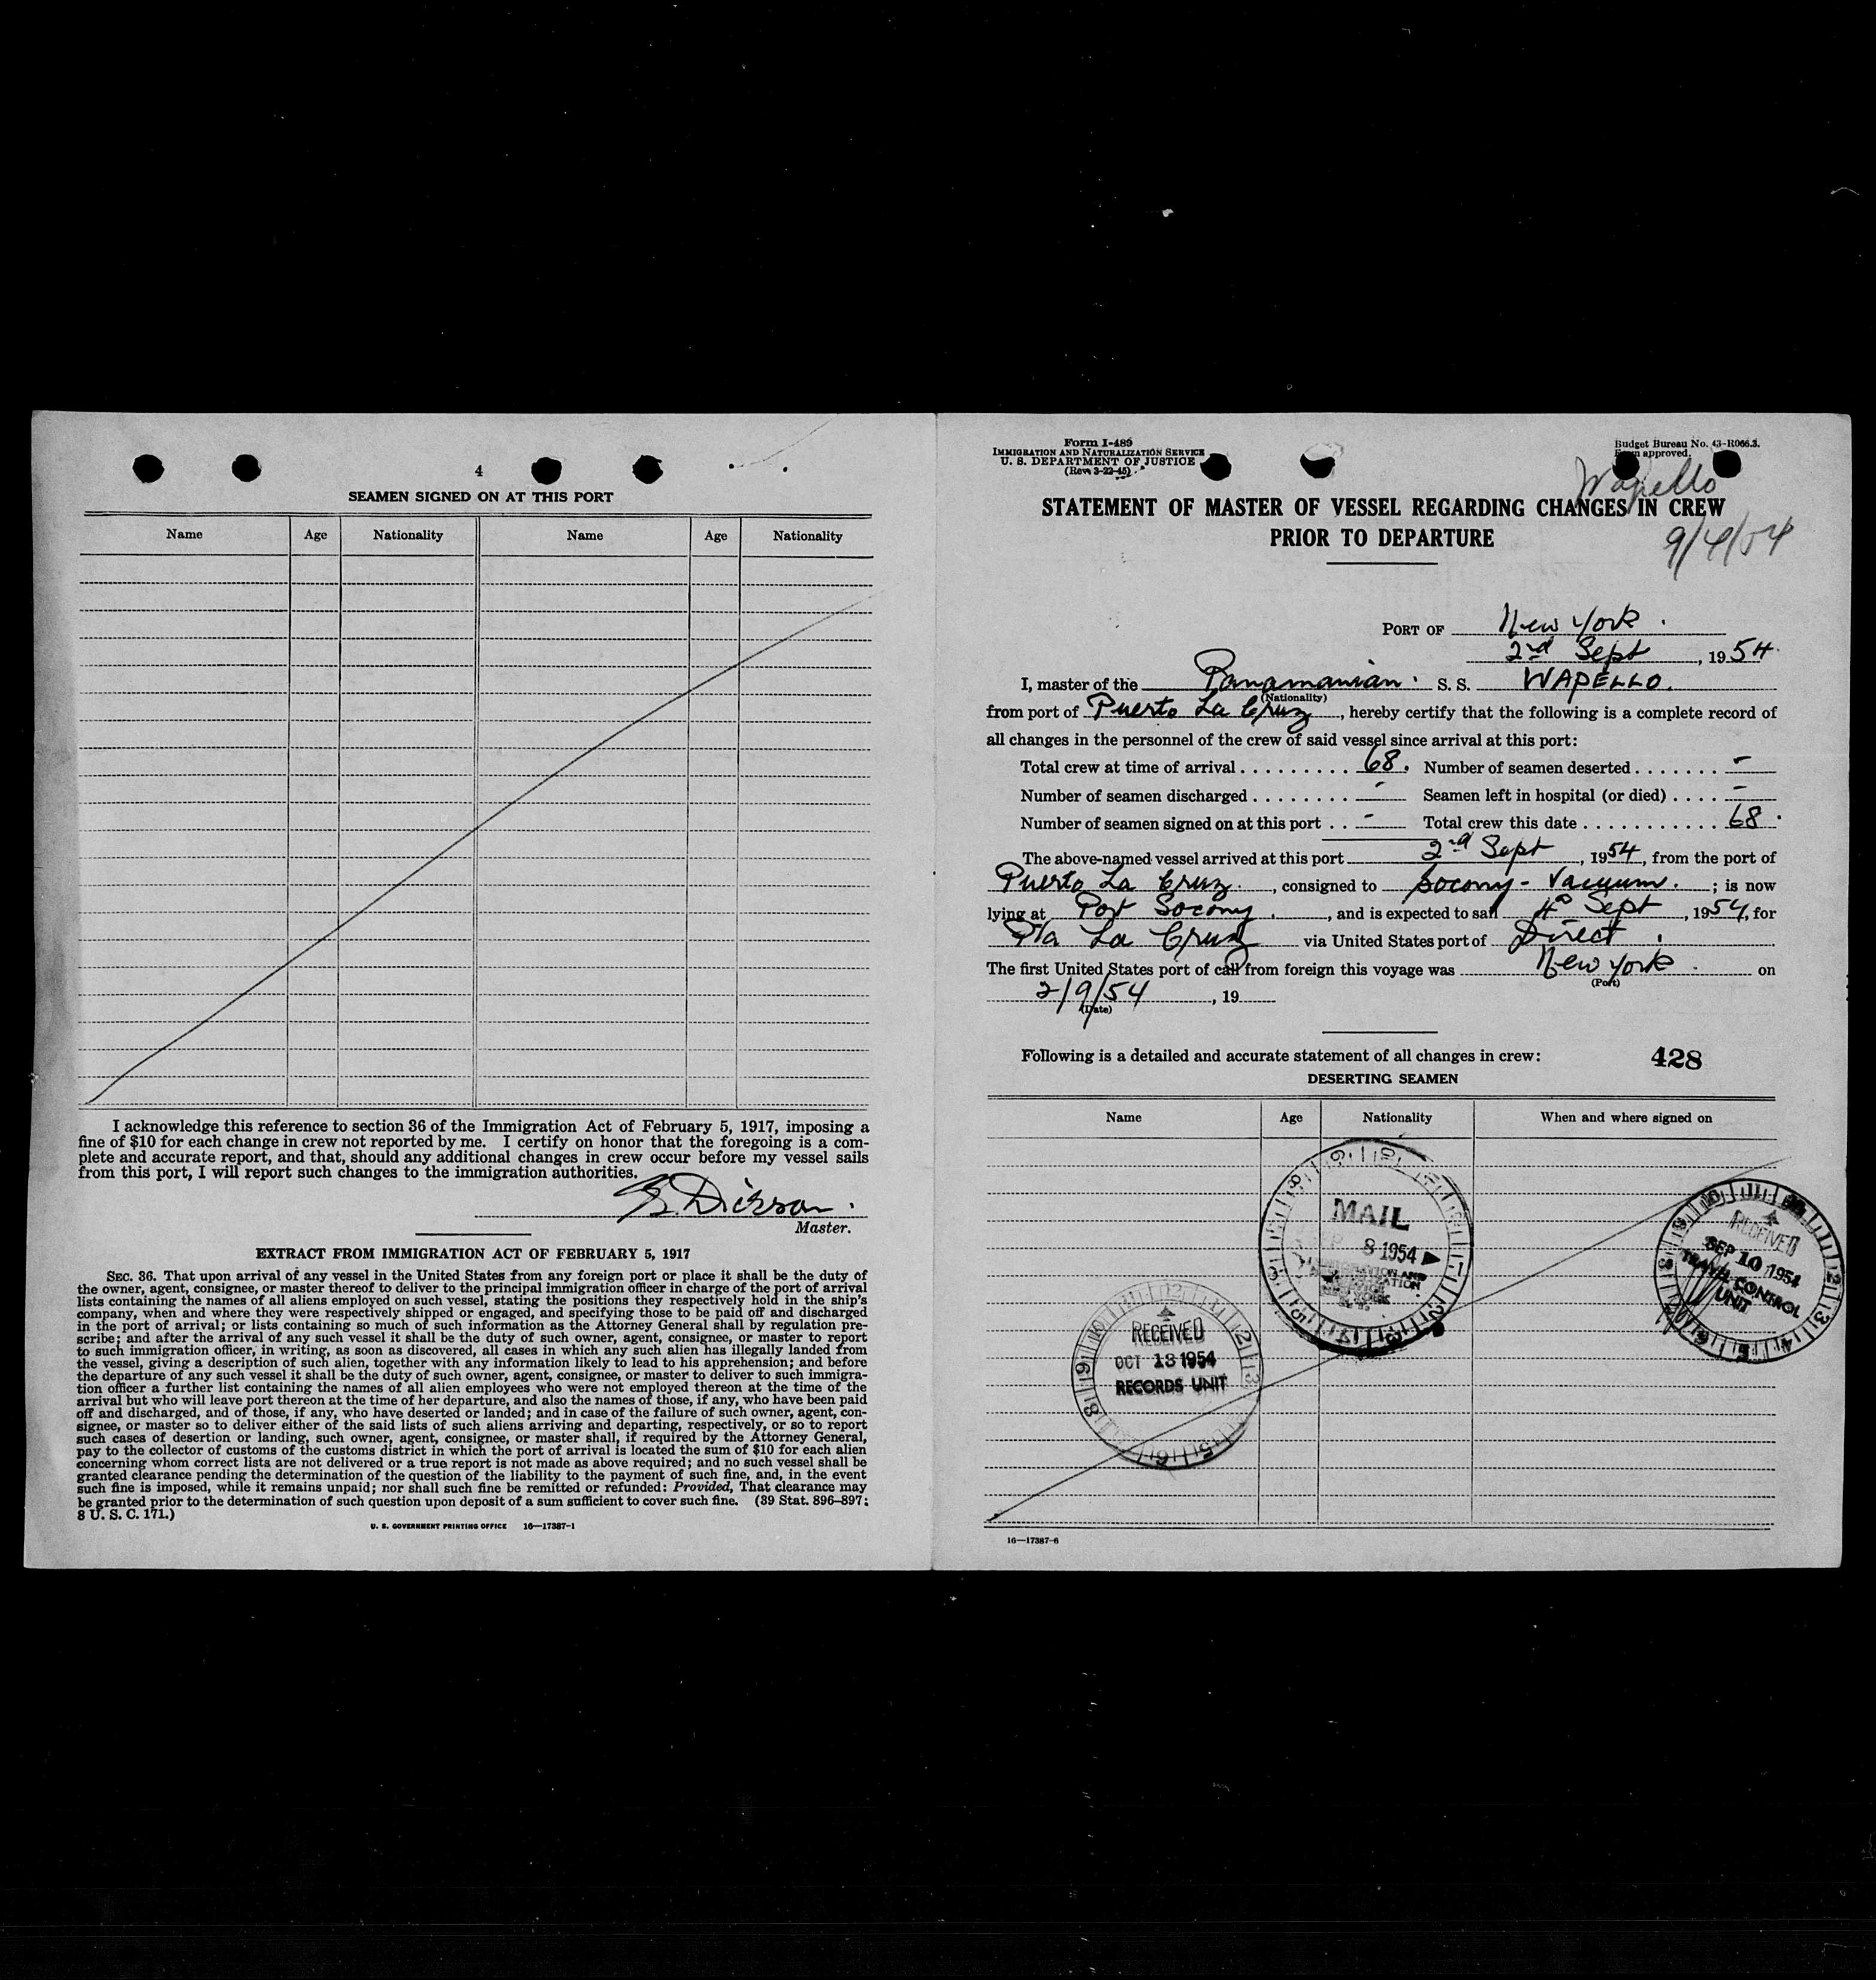 4
SEAMEN SIGNED ON AT THIS PORT
Name Age Nationality Name Age Nationality
I acknowledge this reference to section 36 of the Immigration Act of February 5, 1917, imposing a
fine of $10 for each change in crew not reported by me. I certify on honor that the foregoing is a com-
plete and accurate report, and that, should any additional changes in crew occur before my vessel sails
from this port, I will report such changes to the immigration authorities.
Dickson.
Master.
EXTRACT FROM IMMIGRATION ACT OF FEBRUARY 5, 1917
SEC. 36. That upon arrival of any vessel in the United States from any foreign port or place it shall be the duty of
the owner, agent, consignee, or master thereof to deliver to the principal immigration officer in charge of the port of arrival
lists containing the names of all aliens employed on such vessel, stating the positions they respectively hold in the ship's
company, when and where they were respectively shipped or engaged, and specifying those to be paid off and discharged
in the port of arrival; or lists containing so much of such information as the Attorney General shall by regulation pre-
scribe; and after the arrival of any such vessel it shall be the duty of such owner, agent, consignee, or master to report
to such immigration officer, in writing, as soon as discovered, all cases in which any such alien has illegally landed from
the vessel, giving a description of such alien, together with any information likely to lead to his apprehension; and before
the departure of any such vessel it shall be the duty of such owner, agent, consignee, or master to deliver to such immigra-
tion officer a further list containing the names of all alien employees who were not employed thereon at the time of the
arrival but who will leave port thereon at the time of her departure, and also the names of those, if any, who have been paid
off and discharged, and of those, if any, who have deserted or landed; and in case of the failure of such owner, agent, con-
signee, or master so to deliver either of the said lists of such aliens arriving and departing, respectively, or so to report
such cases of desertion or landing, such owner, agent, consignee, or master shall, if required by the Attorney General,
pay to the collector of customs of the customs district in which the port of arrival is located the sum of $10 for each alien
concerning whom correct lists are not delivered or a true report is not made as above required; and no such vessel shall be
granted clearance pending the determination of the question of the liability to the payment of such fine, and, in the event
such fine is imposed, while it remains unpaid; nor shall such fine be remitted or refunded: Provided, That clearance may
be granted prior to the determination of such question upon deposit of a sum sufficient to cover such fine. (39 Stat. 896–897;
8 U. S. C. 171.)
U. S. GOVERNMENT PRINTING OFFICE 16—17387-1
Form I-489
IMMIGRATION AND NATURALIZATION SERVICE
U. S. DEPARTMENT OF JUSTICE
(Rev. 3-22-45)
Budget Bureau No. 43-R066.3.
approved.
Wapello
STATEMENT OF MASTER OF VESSEL REGARDING CHANGES IN CREW
PRIOR TO DEPARTURE
9/4/54
PORT OF New York.
2nd Sept, 1954.
I, master of the Panamanian. S. S. WAPELLO.
(Nationality)
from port of Puerto La Cruz, hereby certify that the following is a complete record of
all changes in the personnel of the crew of said vessel since arrival at this port:
Total crew at time of arrival . . . . . . . . . . 68. Number of seamen deserted . . . . . . . -
Number of seamen discharged . . . . . . . . - Seamen left in hospital (or died) . . . . -
Number of seamen signed on at this port . . - Total crew this date . . . . . . . . . . . . 68.
The above-named vessel arrived at this port 2nd Sept, 1954, from the port of
Puerto La Cruz., consigned to Socony-Vacuum.; is now
lying at Port Socony., and is expected to sail 4th Sept, 1954, for
Pta La Cruz via United States port of Direct.
The first United States port of call from foreign this voyage was New York. on
(Port)
2/9/54, 19
(Date)
Following is a detailed and accurate statement of all changes in crew: 428
DESERTING SEAMEN
Name Age Nationality When and where signed on
MAIL
SEP 8 1954
RECEIVED
SEP 10 1954
TRAVEL CONTROL
UNIT
RECEIVED
OCT 13 1954
RECORDS UNIT
16—17387-6